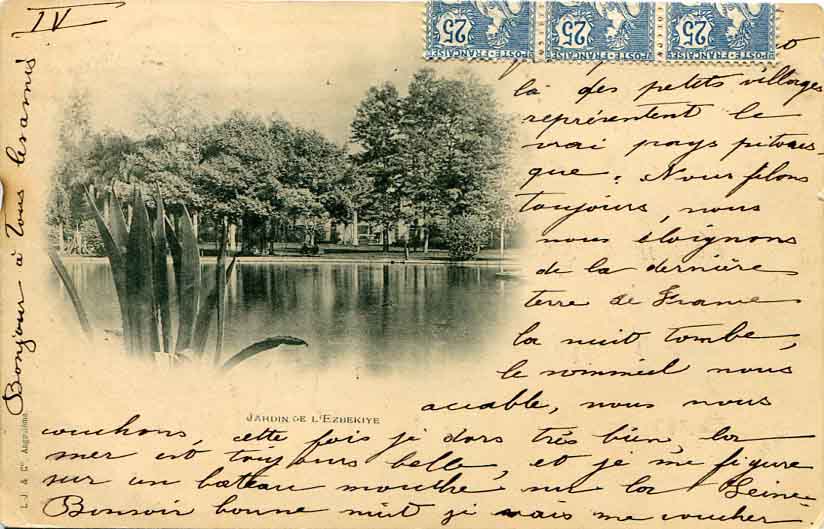 IV
25 25 25
POSTE FRANÇAISE POSTE FRANÇAISE POSTE FRANÇAISE
là des petits villages
représentent le
vrai pays pitores-
que. Nous filons
toujours, nous
nous éloignons
de la dernière
terre de France
la nuit tombe,
le sommeil nous
accable, nous nous
couchons, cette fois je dors très bien, la
mer est toujours belle, et je me figure
sur un bateau mouche sur la Seine
Bonsoir bonne nuit je vais me coucher.
Bonjour à tous les amis
JARDIN DE L'EZBEKIYE
L. J. & Cie Angoulême